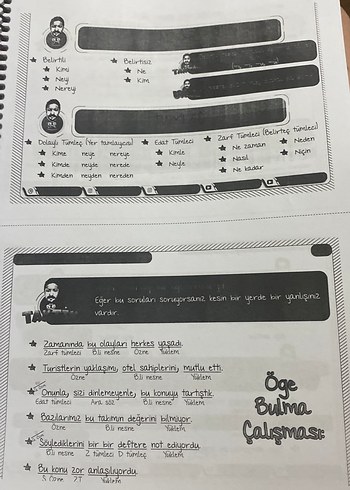 ★ Belirtili ★ Belirtisiz
★ Kimi ★ Ne
★ Neyi ★ Kim
★ Nereyi
★ Dolaylı Tümleç (Yer tamlayıcısı) ★ Edat Tümleci ★ Zarf Tümleci (Belirteç tümleci)
★ Kime neye nereye ★ Kimle ★ Ne zaman ★ Neden
★ Kimde neyde nerede ★ Neyle ★ Nasıl ★ Niçin
★ Kimden neyden nereden ★ Ne kadar
Eğer bu soruları soruyorsanız kesin bir yerde bir yanlışınız
vardır.
★ Zamanında bu olayları herkes yaşadı.
Zarf tümleci B.li nesne Özne Yüklem
★ Turistlerin yaklaşımı, otel sahiplerini, mutlu etti.
Özne B.li nesne Yüklem
★ Onunla, sizi dinlemeyenle, bu konuyu tartıştık.
Edat tümleci Ara söz B.li nesne Yüklem
★ Bazılarımız bu takımın değerini bilmiyor.
Özne B.li nesne Yüklem
★ Söylediklerini bir bir deftere not ediyordu.
B.li nesne Z tümleci D tümleç Yüklem
★ Bu konu zor anlaşılıyordu.
S. Özne Z.T Yüklem
Öge
Bulma
Çalışması: